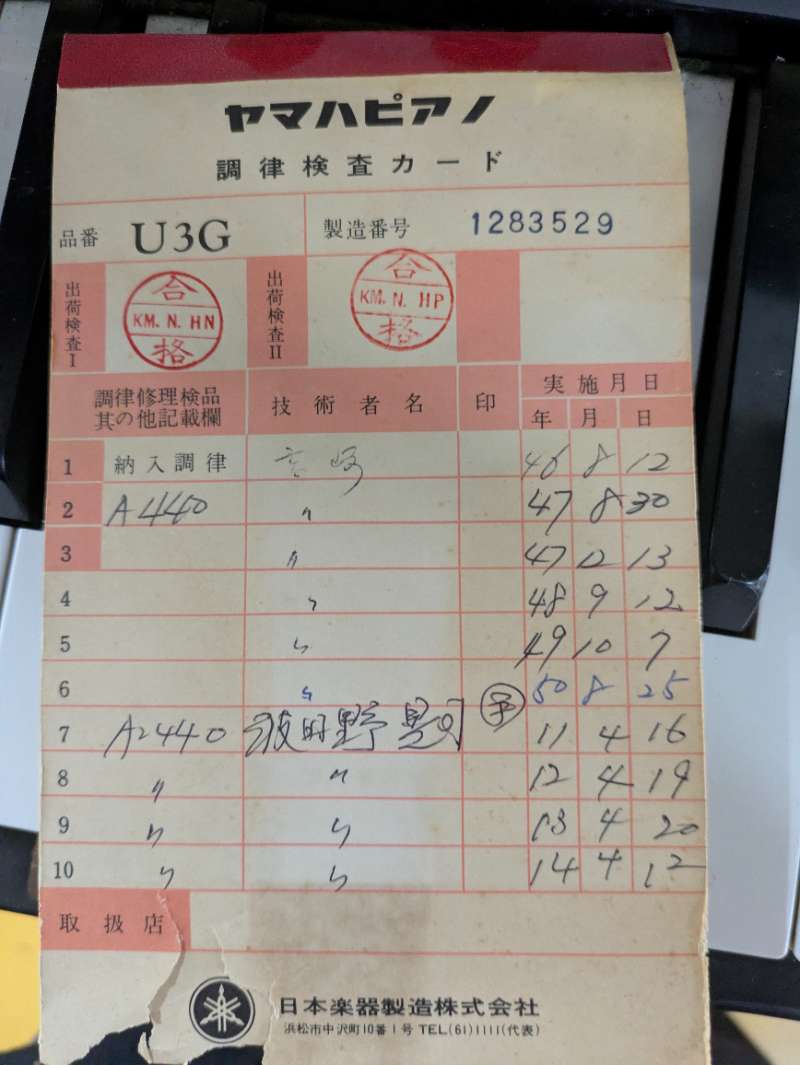 ヤマハピアノ
調律検査カード
品番 U3G 製造番号 1283529
出荷検査I 合格 KM. N. HN 出荷検査II 合格 KM. N. HP
調律修理検品其の他記載欄 技術者名 印 実施月日
年 月 日
1 納入調律 46 8 12
2 A440 〃 47 8 30
3 〃 47 12 13
4 〃 48 9 12
5 〃 49 10 7
6 〃 50 8 25
7 A=440 波田野 11 4 16
8 〃 〃 12 4 19
9 〃 〃 13 4 20
10 〃 〃 14 4 12
取扱店
日本楽器製造株式会社
浜松市中沢町10番1号 TEL(61)1111(代表)